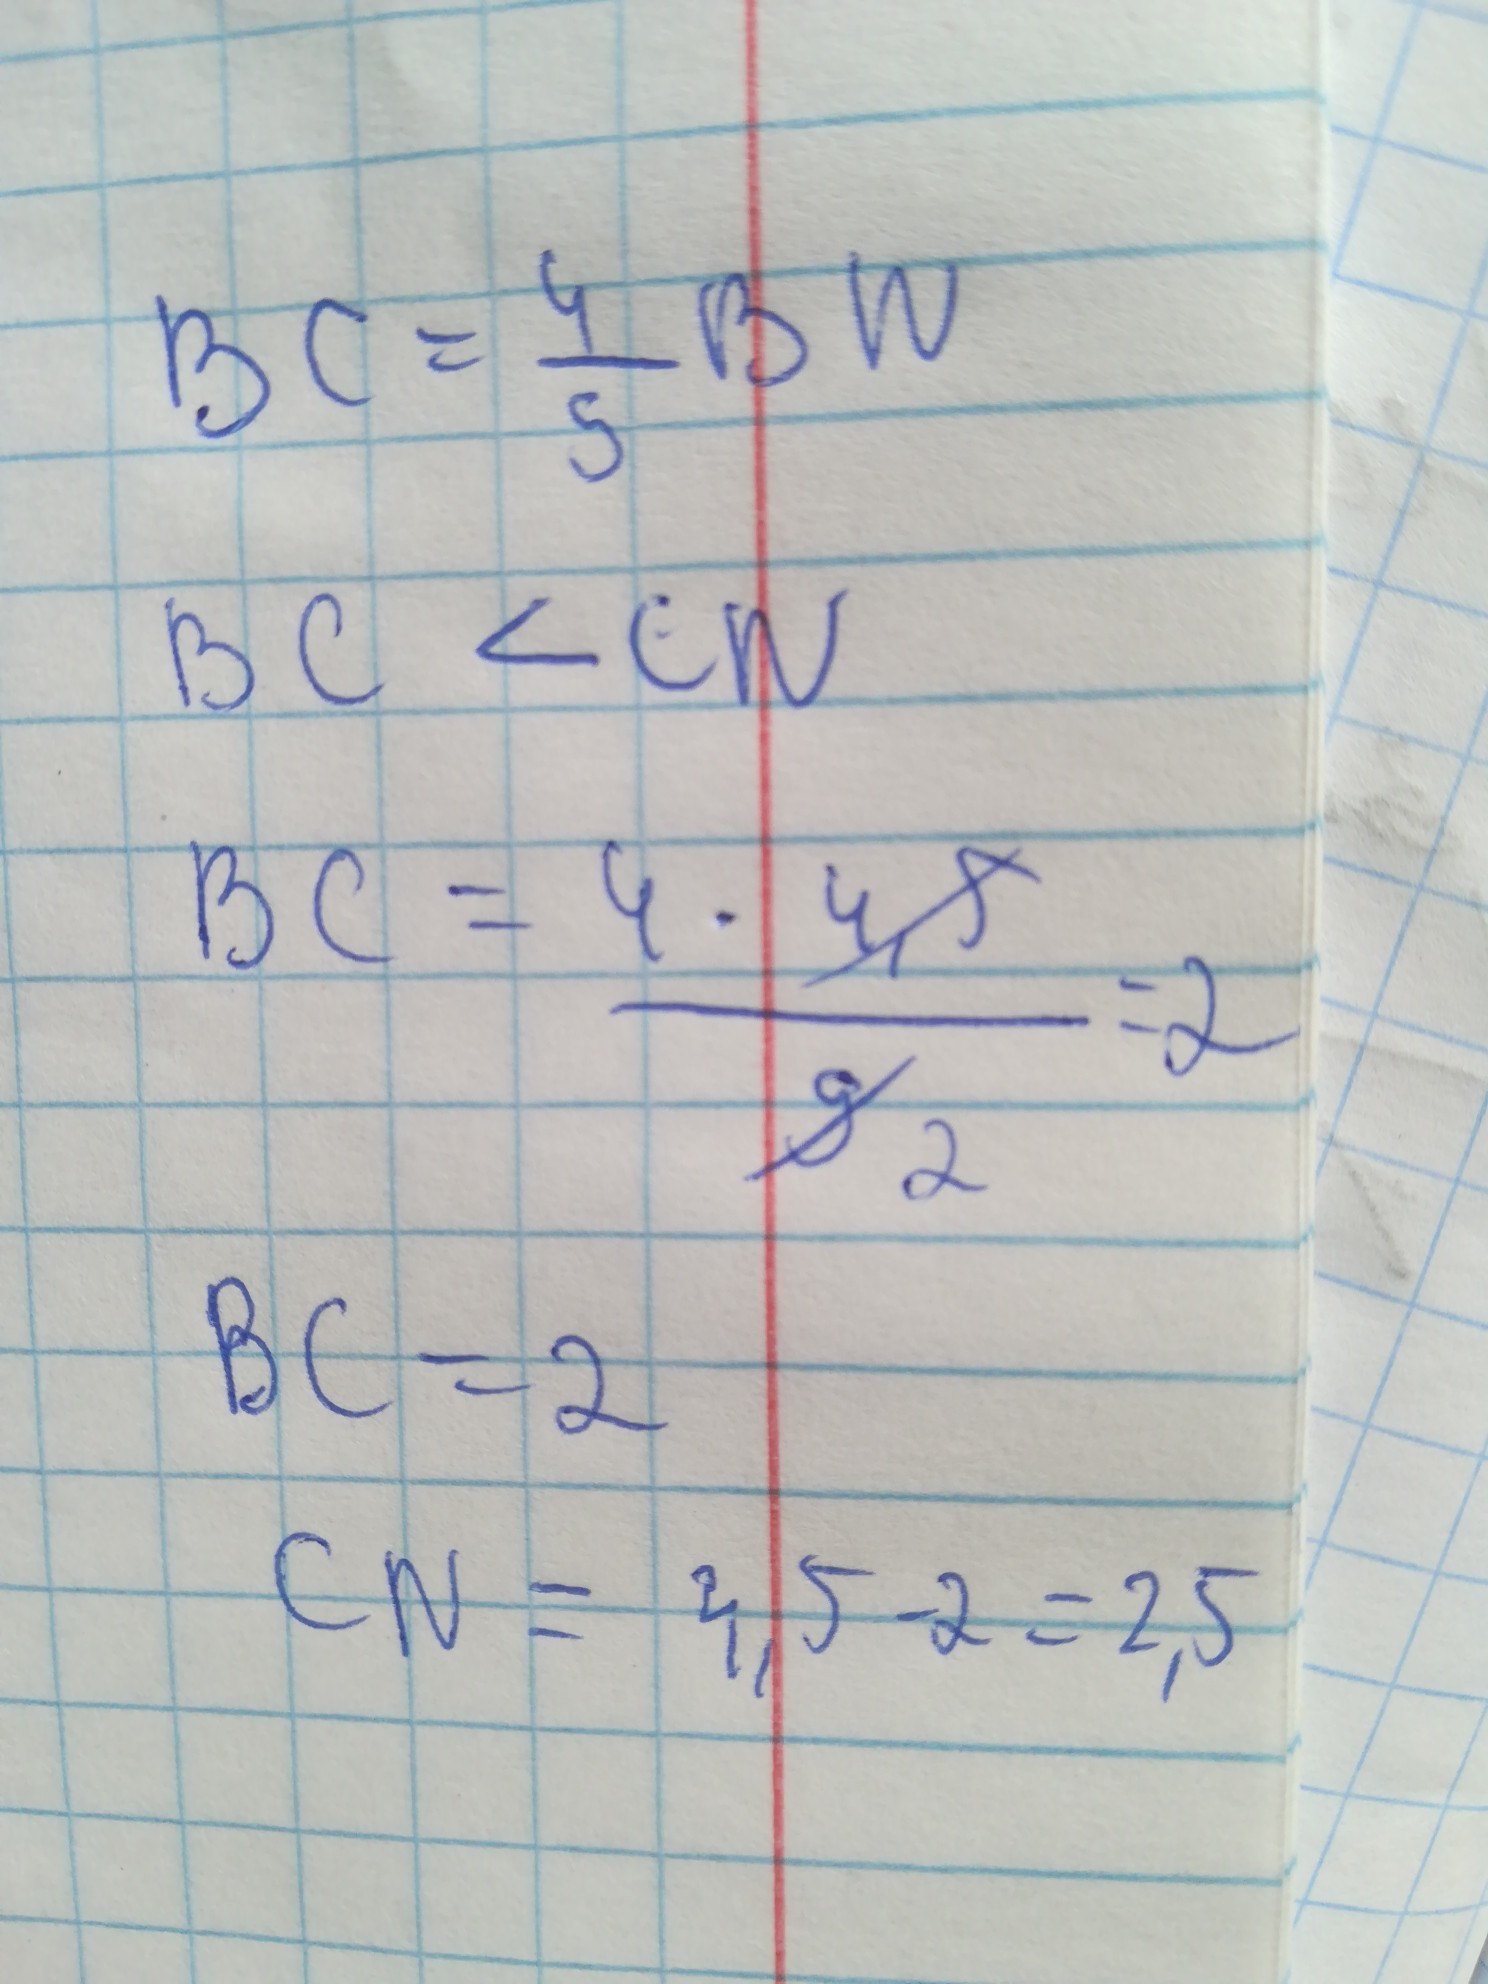 BC = 4/5 BN
BC < CN
BC = 4 · 4,5 / 9 2 = 2
BC = 2
CN = 4,5 - 2 = 2,5